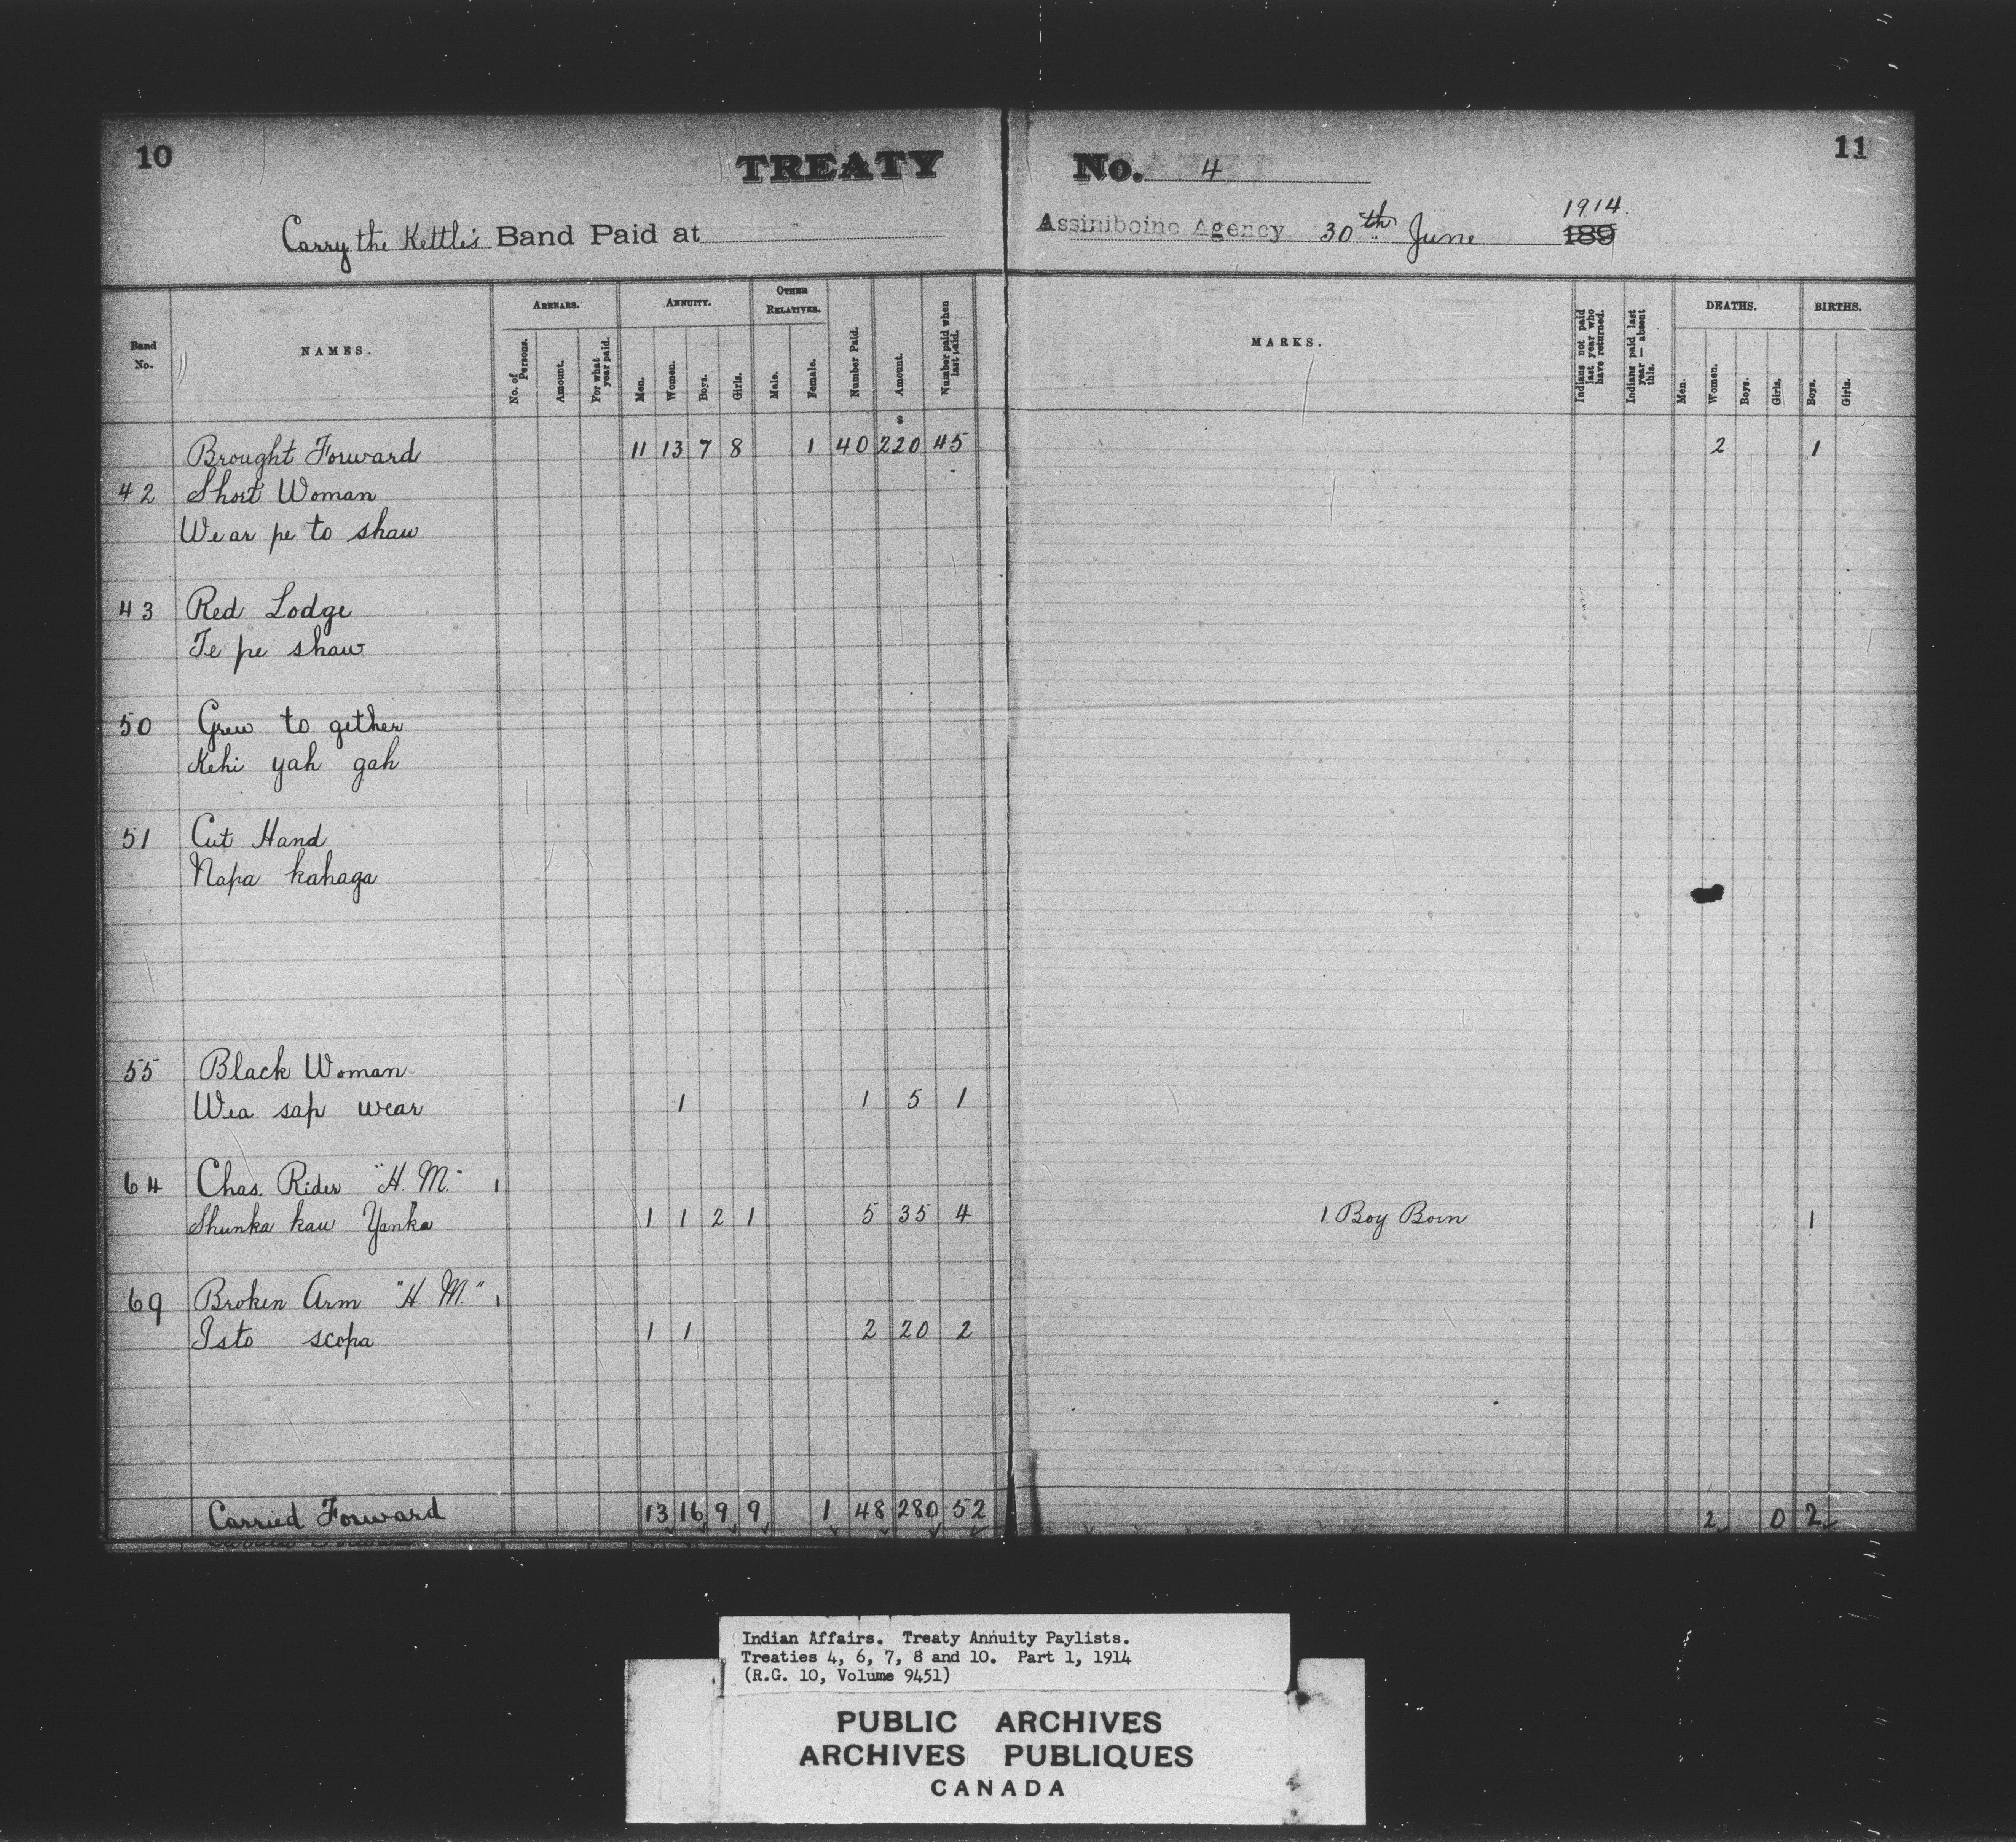 10
TREATY No. 4
11
Carry the Kettle's Band Paid at Assiniboine Agency 30th June 1914. 189
Band No.
NAMES.
ARREARS.
No. of Persons.
Amount.
For what year paid.
ANNUITY.
Men.
Women.
Boys.
Girls.
OTHER RELATIVES.
Male.
Female.
Number Paid.
Amount.
Number paid when last paid.
MARKS.
Indians not paid last year who have returned.
Indians paid last year — absent this.
DEATHS.
Men.
Women.
Boys.
Girls.
BIRTHS.
Boys.
Girls.
$
Brought Forward 11 13 7 8 1 40 220 45 2 1
42 Short Woman
Wear pe to shaw
43 Red Lodge
Te pe shaw
50 Grew to gether
Kehi yah gah
51 Cut Hand
Napa kahaga
55 Black Woman
Wea sap wear 1 1 5 1
64 Chas. Rider "H. M." 1
Shunka kau Yanka 1 1 2 1 5 35 4 1 Boy Born 1
69 Broken Arm "H M." 1
Isto scopa 1 1 2 20 2
Carried Forward 13 16 9 9 1 48 280 52 2 0 2
Indian Affairs. Treaty Annuity Paylists.
Treaties 4, 6, 7, 8 and 10. Part 1, 1914
(R.G. 10, Volume 9451)
PUBLIC ARCHIVES
ARCHIVES PUBLIQUES
CANADA